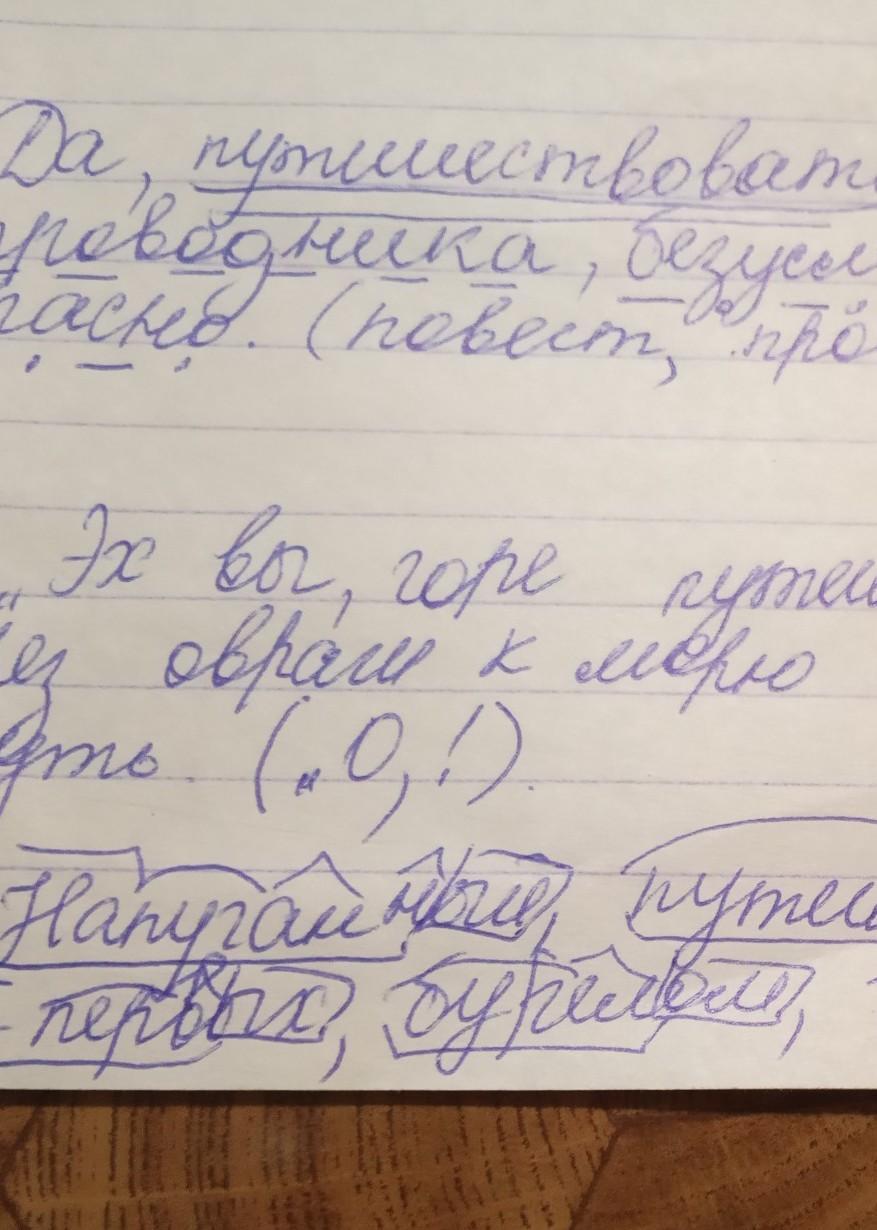 Да, путишествовать
проводника, безусл
пасно. (повест, про
„Эх вы, горе путеш
ез овраги к морю
уть. („О, !).
Напуганный, путеш
первых,